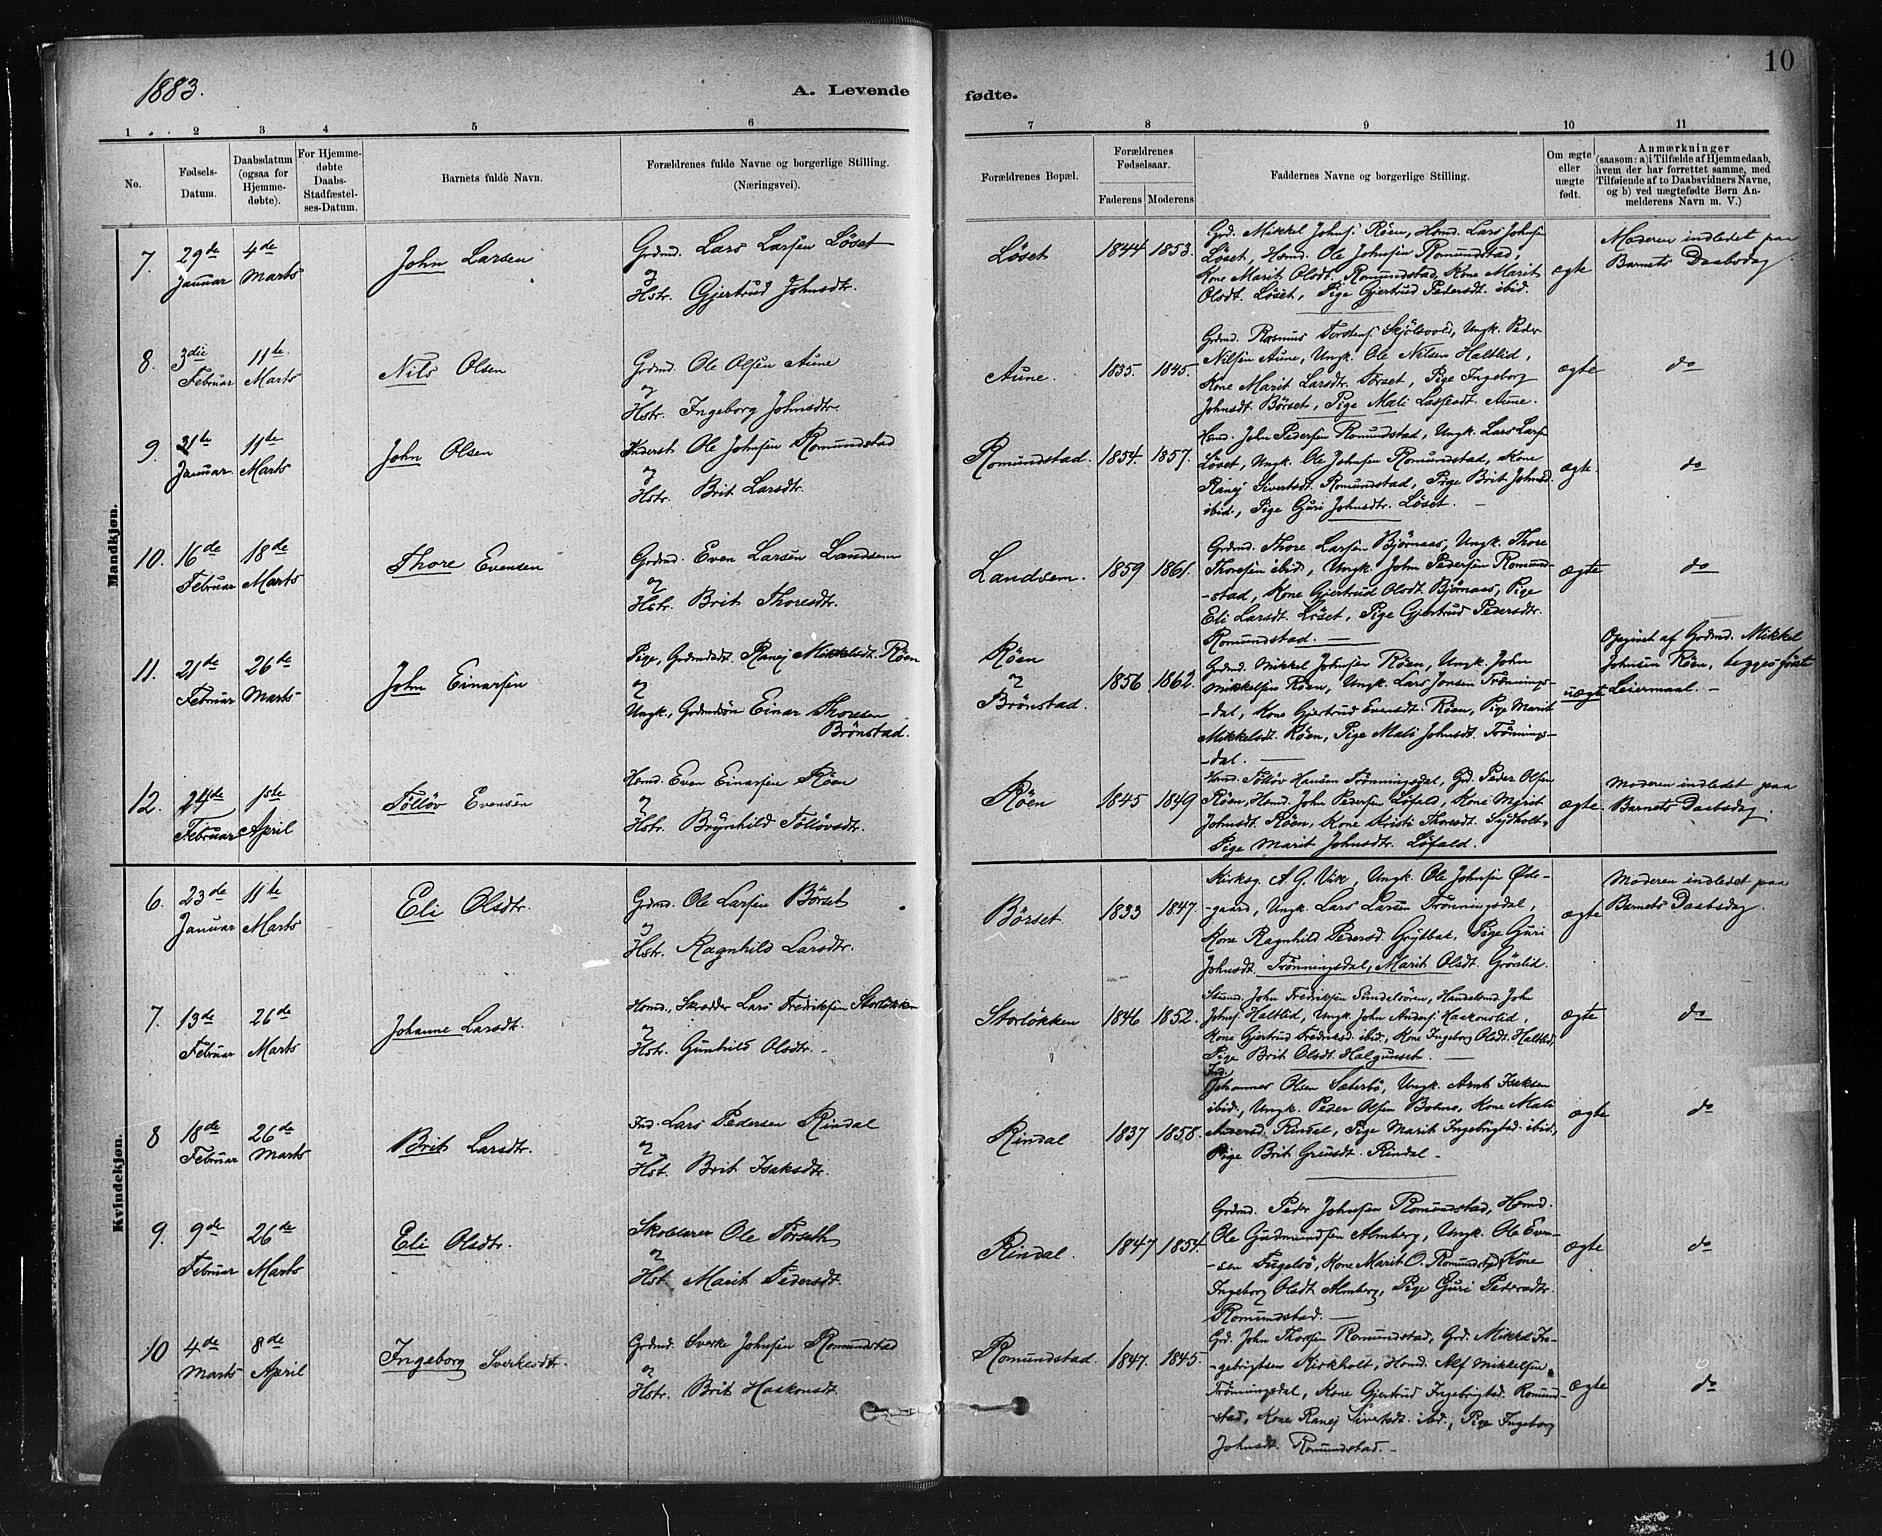 1883.
A. Levende fødte.
10
1 2 3 4 5 6 7 8 9 10 11
No.
Fødsels-Datum.
Daabsdatum (ogsaa for Hjemmedøbte).
For Hjemmedøbte Daabs-Stadfæstelses-Datum.
Barnets fulde Navn.
Forældrenes fulde Navne og borgerlige Stilling.
(Næringsvei).
Forældrenes Bopæl.
Forældrenes Fødselsaar.
Faderens Moderens
Faddernes Navne og borgerlige Stilling.
Om ægte eller uægte født.
Anmærkninger
(saasom: a) i Tilfælde af Hjemmedaab, hvem der har forrettet samme, med Tilføiende af to Daabsvidners Navne, og b) ved uægtefødte Børn Anmelderens Navn m. V.)
Mandkjøn.
7. 29de Januar 4de Marts
John Larsen
Grdmd. Lars Larsen Løset
og
Hstr. Gjertrud Johnsdtr.
Løset 1844 1853.
Grd. Mikkel Johns. Röen, Hsmd. Lars Johnsen
Løset, Hsmd. Ole Johnsen Romundstad,
Kone Marit Olsdt. Romundstad, Kone Marit
Olsdt. Løset, Pige Gjertrud Pedersdt. ibid.
ægte
Moderen indledet paa
Barnets Daabsdag.
8. 3die Februar 11te Marts
Nils Olsen
Grdmd. Ole Olsen Aune
og
Hstr. Ingeborg Johnsdtr.
Aune. 1835. 1845.
Grdmd. Rasmus Torstens. Skjölsvold, Ungk. Peder
Nilsen Aune, Ungk. Ole Nilsen Haltlid,
Kone Marit Larsdt. Törset, Pige Ingeborg
Johnsdt. Børset, Pige Mali Lassesdt. Aune.
ægte
do
9. 21te Januar 11te Marts
John Olsen
Inderst Ole Johnsen Romundstad
og
Hstr. Brit Larsdtr.
Romundstad. 1854. 1857.
Hsmd. John Pedersen Romundstad, Ungk. Lars Lars.
Løset, Ungk. Ole Johnsen Romundstad, Kone
Ranej Sivertsdt. Romundstad, Pige Brit Johnsd.
ibid., Pige Guri Johnsdtr. Løset.
ægte.
do
10. 16de Februar 18de Marts
Thore Evensen
Grdmd. Even Larsen Landsem
og
Hstr. Brit Thoresdtr.
Landsem. 1859 1861.
Grdmd. Thore Larsen Bjørnaas, Ungk. Thore
Thoresen ibid., Ungk. John Pedersen Romund-
-stad, Kone Gjertrud Olsdt. Bjørnaas, Pige
Eli Larsdt. Løset, Pige Gjertrud Pedersdtr.
Romundstad.
ægte
do
11. 21de Februar 26de Marts
John Einarsen
Pige, Grdmdsdt. Ranej Mikkelsdt. Röen
og
Ungk., Grdmdsön Einar Thoresen
Brönstad.
Röen
og
Brönstad.
1856 1862.
Grdmd. Mikkel Johnsen Röen, Ungk. John
Mikkelsen Röen, Ungk. Lars Jonsen Trönnings-
-dal, Kone Gjertrud Evensdt. Röen, Pige Marit
Mikkelsdt. Röen, Pige Mali Johnsdt. Trönnings-
-dal.
uægte
Opgivet af Grdmd. Mikkel
Johnsen Röen, begges første
Leiermaal.
12. 24de Februar 1ste April
Tölløv Evensen
Hsmd. Even Einarsen Röen
og
Hstr. Brynhild Tölløvsdt.
Röen 1845 1849
Hsmd. Tölløv Hansen Trönningsdal, Grd. Peder Olsen
Röen, Hsmd. John Pedersen Løfald, Kone Marit
Johnsdt. Röen, Kone Kristi Thoresdt.
Pige Marit Johnsdtr. Løfald.
ægte.
Moderen indledet paa
Barnets Daabsdag.
Kvindekjøn.
6. 23de Januar 11te Marts
Eli Olsdtr.
Grdmd. Ole Larsen Börset
og
Hstr. Ragnhild Larsdtr.
Börset 1833 1847.
Kirksg. A. G. Vik, Ungk. Ole Johnsen Øde-
-gaard, Ungk. Lars Larsen Trönningsdal,
Kone Ragnhild Pedersd. Grytbak, Pige Guri
Johnsdt. Trönningsdal, Marit Olsdt. Grönlid.
ægte
Moderen indledet paa
Barnets Daabsdag.
7. 13de Februar 26de Marts
Johanne Larsdt.
Hsmd., Skrædder Lars Fredriksen Storløkken
og
Hstr. Gunhild Olsdtr.
Storløkken 1846 1852.
John Fredriksen Sundalsören, Handelsmd. John
Johns. Haltlid, Ungk. John Anders. Haakonslid,
Kone Gjertrud Fredriksd. ibid., Kone Ingeborg Olsdt. Haltlid,
Pige Brit Olsdt. Halgunset.
ægte
do
8 18de Februar 26de Marts
Brit Larsdtr.
Ind. Lars Pedersen Rindal
og
Hst. Brit Isaksdtr.
Rindal 1837 1858.
Ind.
Johannes Olsen Sæterbö, Ungk. Arnt Isaksen
ibid., Ungk. Peder Olsen Bolme, Kone Mali
Andersd. Rindal, Pige Marit Ingebrigtsd. ibid.,
Pige Brit Rindal.
ægte
do
9. 9de Februar 26de Marts
Eli Olsdtr.
Skolelærer Ole Törseth
og
Hst. Marit Pedersdt.
Rindal. 1847 1854.
Grdmd. Peder Johnsen Romundstad, Hsmd.
Ole Gudmundsen Almberg, Ungk. Ole Even-
-sen Fugelsö, Kone Marit O. Romundstad, Kone
Ingeborg Olsdt. Almberg, Pige Guri Pedersdtr.
Romundstad.
ægte
do
10 4de Marts 8de April
Ingeborg Sverkesdtr.
Grdmd. Sverke Johnsen Romundstad
og
Hstr. Brit Haakonsdt.
Romundstad. 1847. 1845.
Grd. John Thorsen Romundstad, Grd. Mikkel In-
-gebrigtsen Kirkholt, Hsmd. Alf Mikkelsen
Trönningsdal, Kone Gjertrud Ingebrigtsd. Romund-
-stad, Kone Ranej Sivertsdt. ibd., Pige Ingeborg
Johnsdt. Romundstad.
ægte
do